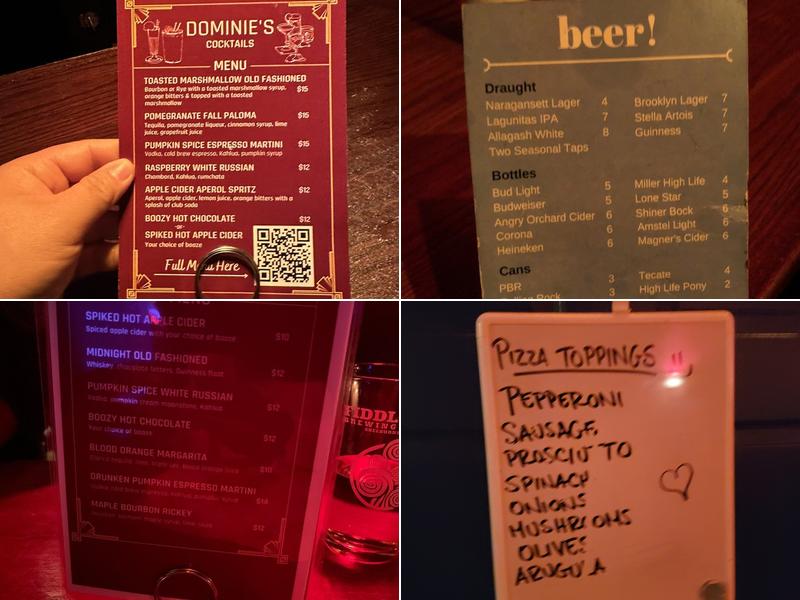 DOMINIE'S
COCKTAILS
MENU
TOASTED MARSHMALLOW OLD FASHIONED
Bourbon or Rye with a toasted marshmallow syrup, $15
orange bitters & topped with a toasted
marshmallow
POMEGRANATE FALL PALOMA $15
Tequila, pomegranate liqueur, cinnamon syrup, lime
juice, grapefruit juice
PUMPKIN SPICE ESPRESSO MARTINI $15
Vodka, cold brew espresso, Kahlua, pumpkin syrup
RASPBERRY WHITE RUSSIAN $12
Chambord, Kahlua, rumchata
APPLE CIDER APEROL SPRITZ $12
Aperol, apple cider, lemon juice, orange bitters with a
splash of club soda
BOOZY HOT CHOCOLATE $12
-or-
SPIKED HOT APPLE CIDER
Your choice of booze
Full Menu Here
beer!
Draught
Naragansett Lager 4
Lagunitas IPA 7
Allagash White 8
Two Seasonal Taps
Brooklyn Lager 7
Stella Artois 7
Guinness 7
Bottles
Bud Light 5
Budweiser 5
Angry Orchard Cider 6
Corona 6
Heineken 6
Miller High Life 4
Lone Star 5
Shiner Bock 6
Amstel Light 6
Magner's Cider 6
Cans
PBR 3
Rolling Rock 3
Tecate 4
High Life Pony 2
MENU
SPIKED HOT APPLE CIDER
Spiked apple cider with your choice of booze $10
MIDNIGHT OLD FASHIONED
Whiskey, chocolate bitters, Guinness float $12
PUMPKIN SPICE WHITE RUSSIAN
Vodka, pumpkin cream moonshine, Kahlua $12
BOOZY HOT CHOCOLATE
Your choice of booze $12
BLOOD ORANGE MARGARITA
$10
DRUNKEN PUMPKIN ESPRESSO MARTINI
$14
MAPLE BOURBON RICKEY
$12
FIDDL
BREWING
PIZZA TOPPINGS
PEPPERONI
SAUSAGE
PROSCIUTTO
SPINACH
ONIONS
MUSHROOMS
OLIVES
ARUGULA